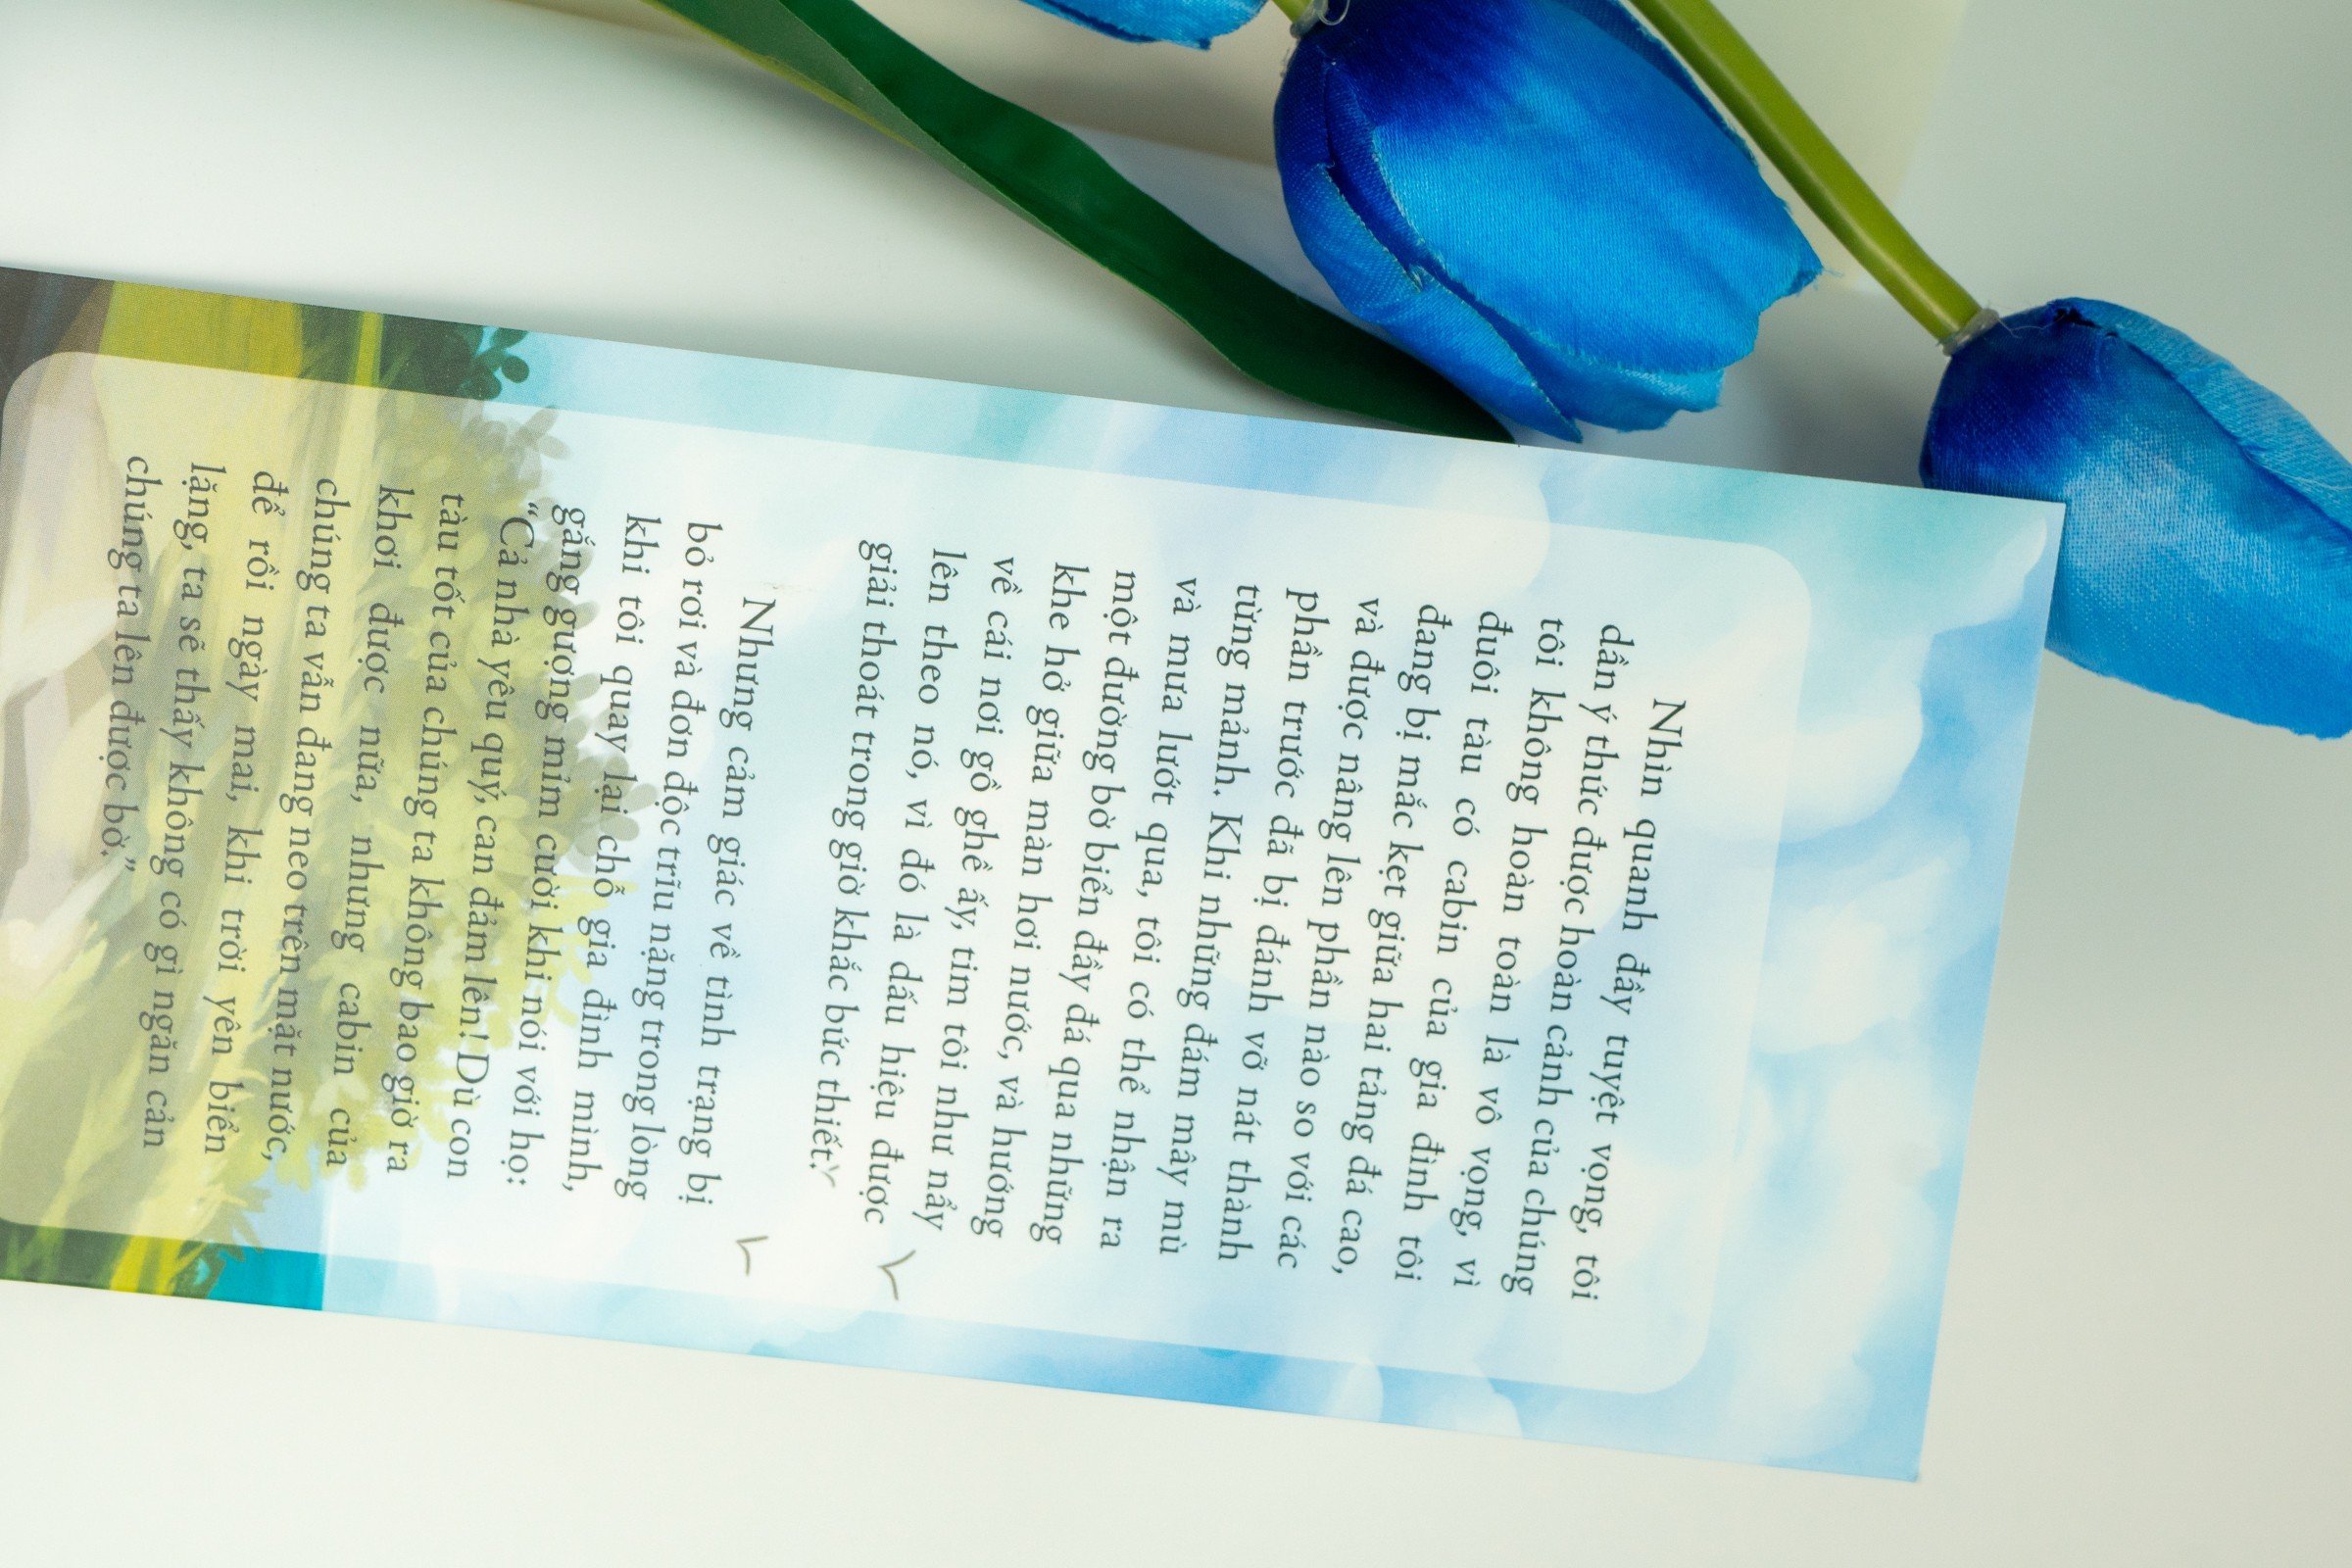 Nhìn quanh đầy tuyệt vọng, tôi
dần ý thức được hoàn cảnh của chúng
tôi không hoàn toàn là vô vọng, vì
đuôi tàu có cabin của gia đình tôi
đang bị mắc kẹt giữa hai tảng đá cao,
và được nâng lên phần nào so với các
phần trước đã bị đánh vỡ nát thành
từng mảnh. Khi những đám mây mù
và mưa lướt qua, tôi có thể nhận ra
một đường bờ biển đầy đá qua những
khe hở giữa màn hơi nước, và hướng
về cái nơi gồ ghề ấy, tim tôi như nẩy
lên theo nó, vì đó là dấu hiệu được
giải thoát trong giờ khắc bức thiết.
Nhưng cảm giác về tình trạng bị
bỏ rơi và đơn độc trĩu nặng trong lòng
khi tôi quay lại chỗ gia đình mình,
gắng gượng mỉm cười khi nói với họ:
“Cả nhà yêu quý, can đảm lên! Dù con
tàu tốt của chúng ta không bao giờ ra
khơi được nữa, nhưng cabin của
chúng ta vẫn đang neo trên mặt nước,
để rồi ngày mai, khi trời yên biển
lặng, ta sẽ thấy không có gì ngăn cản
chúng ta lên được bờ.”